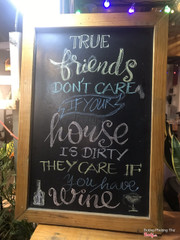 TRUE
friends
DON'T CARE
IF YOUR
house
IS DIRTY
THEY CARE IF
you have
wine